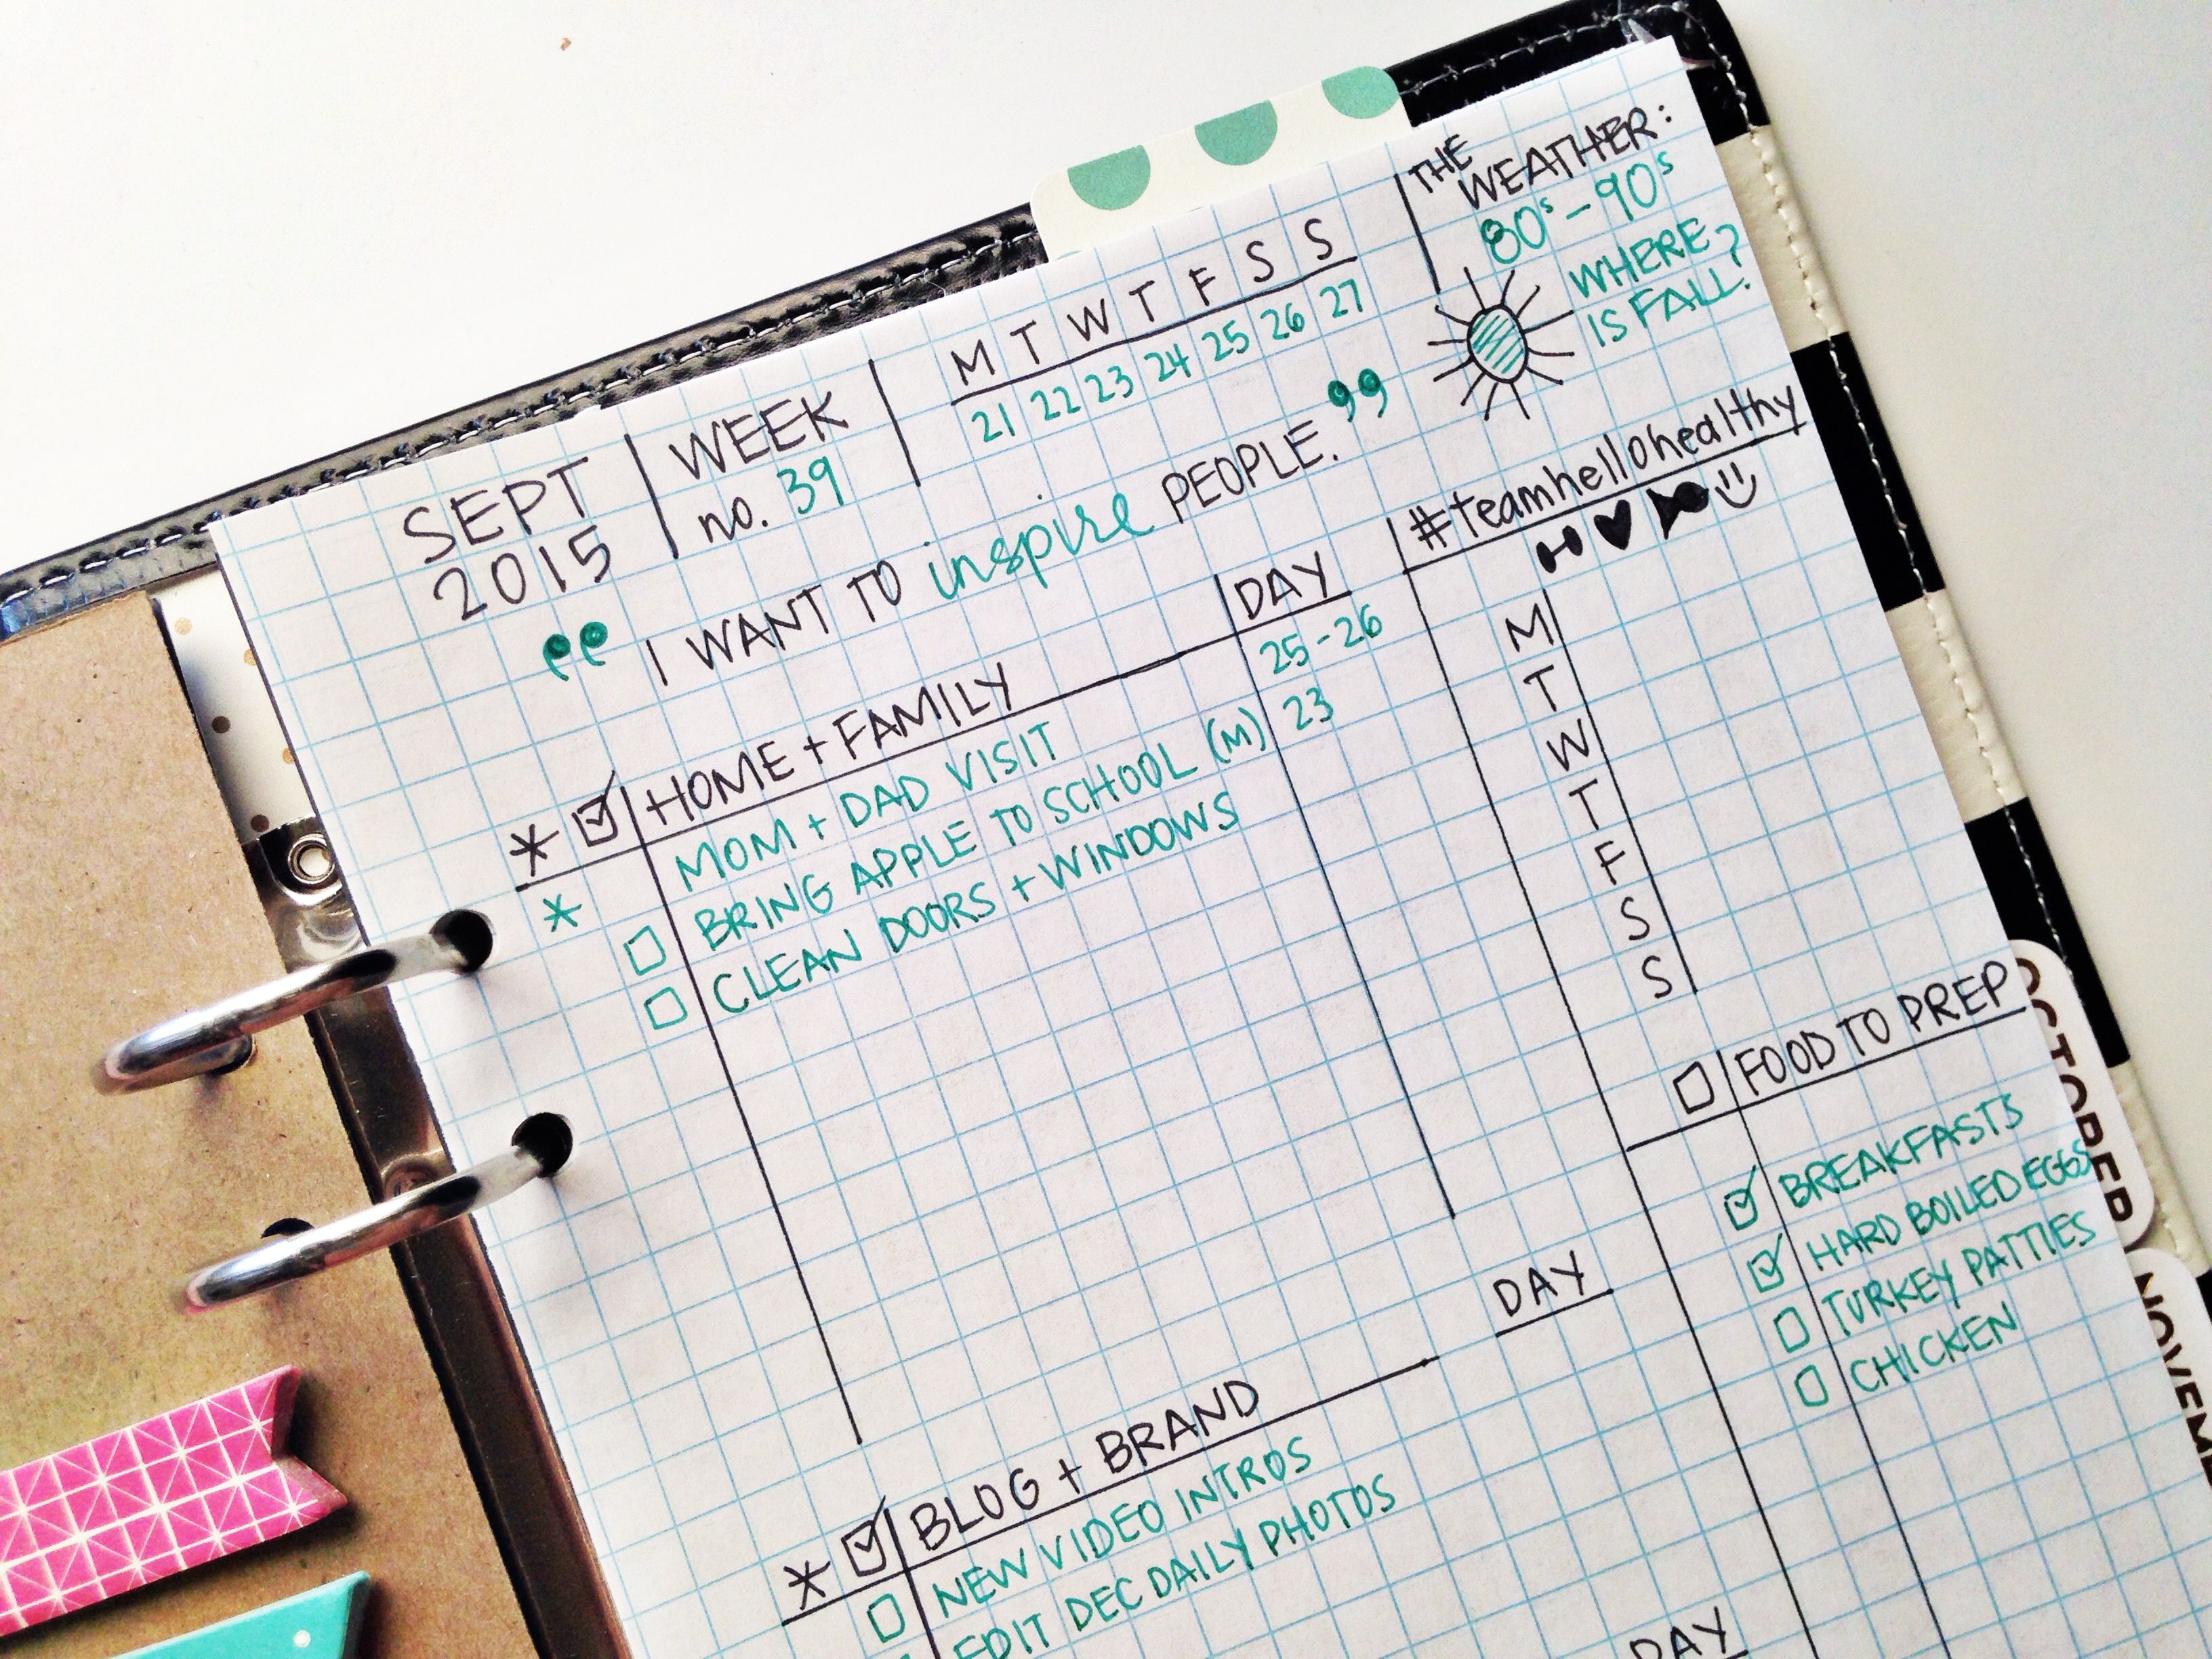 SEPT
2015
WEEK
no. 39
M T W T F S S
21 22 23 24 25 26 27
THE
WEATHER:
80s-90s
WHERE
IS FALL?
"I WANT TO inspire PEOPLE."
#teamhellohealthy
M
T
W
T
F
S
S
* HOME + FAMILY DAY
* MOM + DAD VISIT 25-26
BRING APPLE TO SCHOOL (M) 23
CLEAN DOORS + WINDOWS
FOOD TO PREP
BREAKFASTS
HARD BOILED EGGS
TURKEY PATTIES
CHICKEN
* BLOG + BRAND DAY
NEW VIDEO INTROS
EDIT DEC DAILY PHOTOS
DAY
OCTOBER
NOVEM